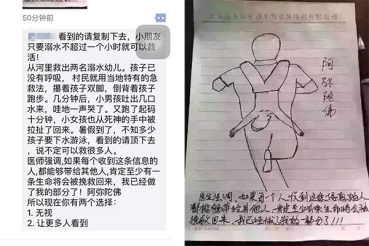 50分钟前
看到的请复制下去，小朋友
只要溺水不超过一个小时就可以救
活！
从河里救出两名溺水幼儿。孩子已
没有呼吸，村民就用当地特有的急
救法，攥着孩子双脚，倒背着孩子
跑步。几分钟后，小男孩吐出几口
水，哇地一声哭了。又跑了起码
十分钟，小女孩也从死神的手中被
拉扯了回来。暑假到了，不知多少
孩子要下水游泳，看到的请顶下去
，说不定可以救很多人。
医师强调,如果每个收到这条信息的
人,都能够带给其他人,肯定至少有一
条生命将会被挽救回来, 我已经做
了我的部分了！阿弥陀佛
所以现在你有两个选择：
1. 无视
2. 让更多人看到
阿弥陀佛
医生强调，如果每一个人收到这条信息的人